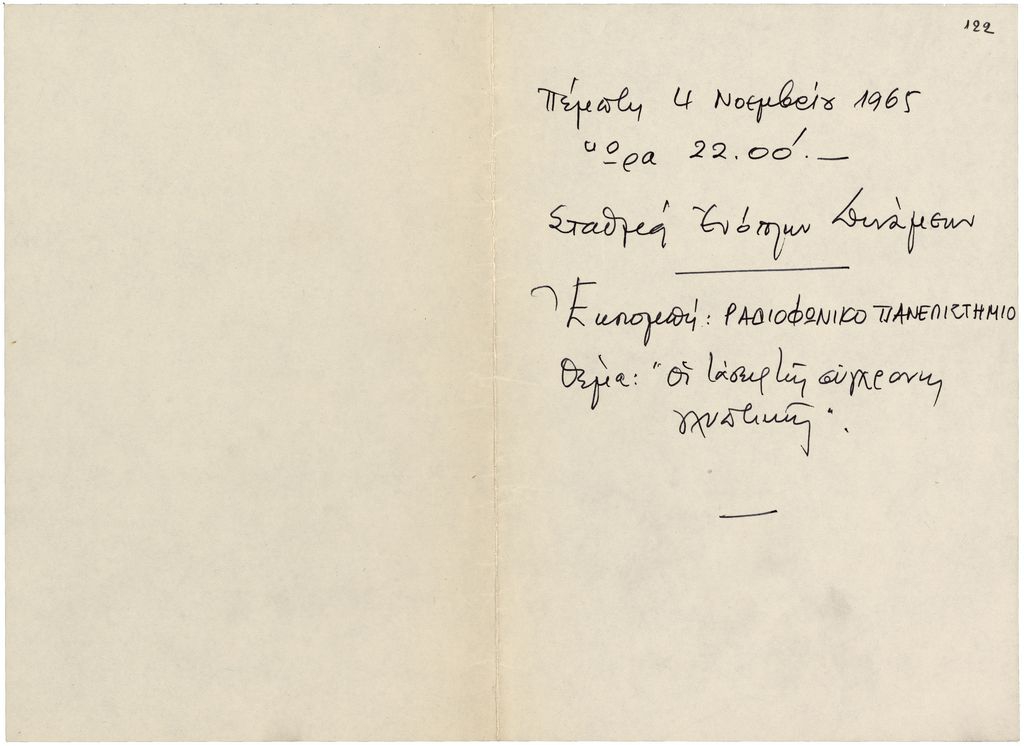 122
Πέμπτη 4 Νοεμβρίου 1965
Ὥρα 22.00΄.—
Σταθμοῦ Ἐνόπλων Δυνάμεων
Ἐκπομπή: ΡΑΔΙΟΦΩΝΙΚΟ ΠΑΝΕΠΙΣΤΗΜΙΟ
Θέμα: "Οἱ τάσεις τῆς σύγχρονης
γλυπτικῆς".